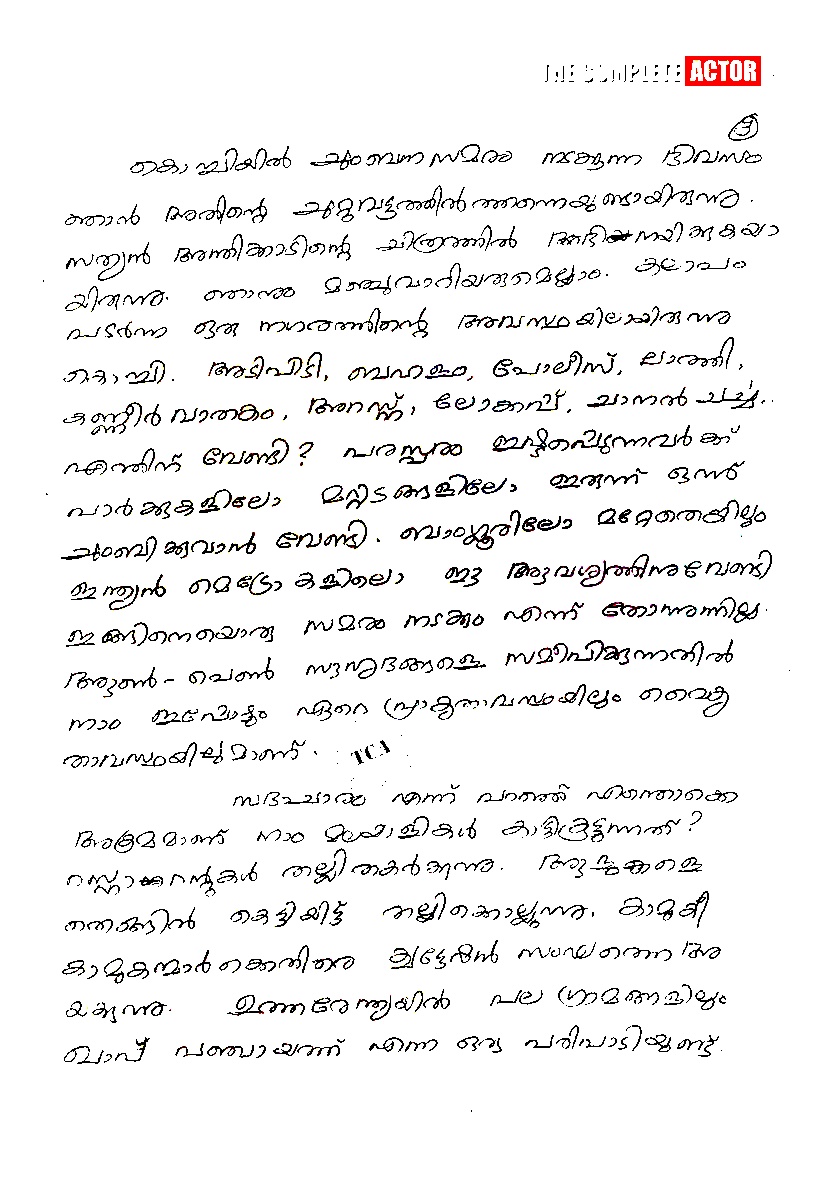 THE COMPLETE ACTOR
3
കൊച്ചിയിൽ ചുംബനസമരം നടക്കുന്ന ദിവസം
ഞാൻ അതിന്റെ ചുറ്റുവട്ടത്തിൽത്തന്നെയുണ്ടായിരുന്നു.
സത്യൻ അന്തിക്കാടിന്റെ ചിത്രത്തിൽ അഭിനയിക്കുകയാ
യിരുന്നു. ഞാനും മഞ്ചുവാരിയരുമെല്ലാം. കലാപം
പടർന്ന ഒരു നഗരത്തിന്റെ അവസ്ഥയിലായിരുന്നു
കൊച്ചി. അടിപിടി, ബഹളം, പോലീസ്, ലാത്തി,
കണ്ണീർ വാതകം, അറസ്റ്റ്, ലോക്കപ്പ്, ചാനൽ ചർച്ച..
എന്തിന് വേണ്ടി? പരസ്പരം ഇഷ്ടപ്പെടുന്നവർക്ക്
പാർക്കുകളിലോ മറ്റിടങ്ങളിലോ ഇരുന്ന് ഒന്ന്
ചുംബിക്കുവാൻ വേണ്ടി. ബാംഗ്ലൂരിലോ മറ്റേതെങ്കിലും
ഇന്ത്യൻ മെട്രോകളിലൊ ഈ ആവശ്യത്തിനുവേണ്ടി
ഇങ്ങിനെയൊരു സമരം നടക്കും എന്ന് തോന്നുന്നില്ല.
ആൺ - പെൺ സൗഹൃദങ്ങളെ സമീപിക്കുന്നതിൽ
നാം ഇപ്പോഴും ഏറെ പ്രാകൃതാവസ്ഥയിലും വൈകൃ
താവസ്ഥയിലുമാണ്. TCA
സദാചാരം എന്ന് പറഞ്ഞ് എന്തൊക്കെ
അക്രമമാണ് നാം മലയാളികൾ കാട്ടികൂട്ടുന്നത്?
റസ്റ്റോറന്റുകൾ തല്ലിതകർക്കുന്നു. ആളുകളെ
തെങ്ങിൽ കെട്ടിയിട്ട് തല്ലിക്കൊല്ലുന്നു. കാമുകീ
കാമുകന്മാർക്കെതിരെ ക്വട്ടേഷൻ സംഘത്തെ അ
യക്കുന്നു. ഉത്തരേന്ത്യയിൽ പല ഗ്രാമങ്ങളിലും
ഖാപ് പഞ്ചായത്ത് എന്ന ഒരു പരിപാടിയുണ്ട്.